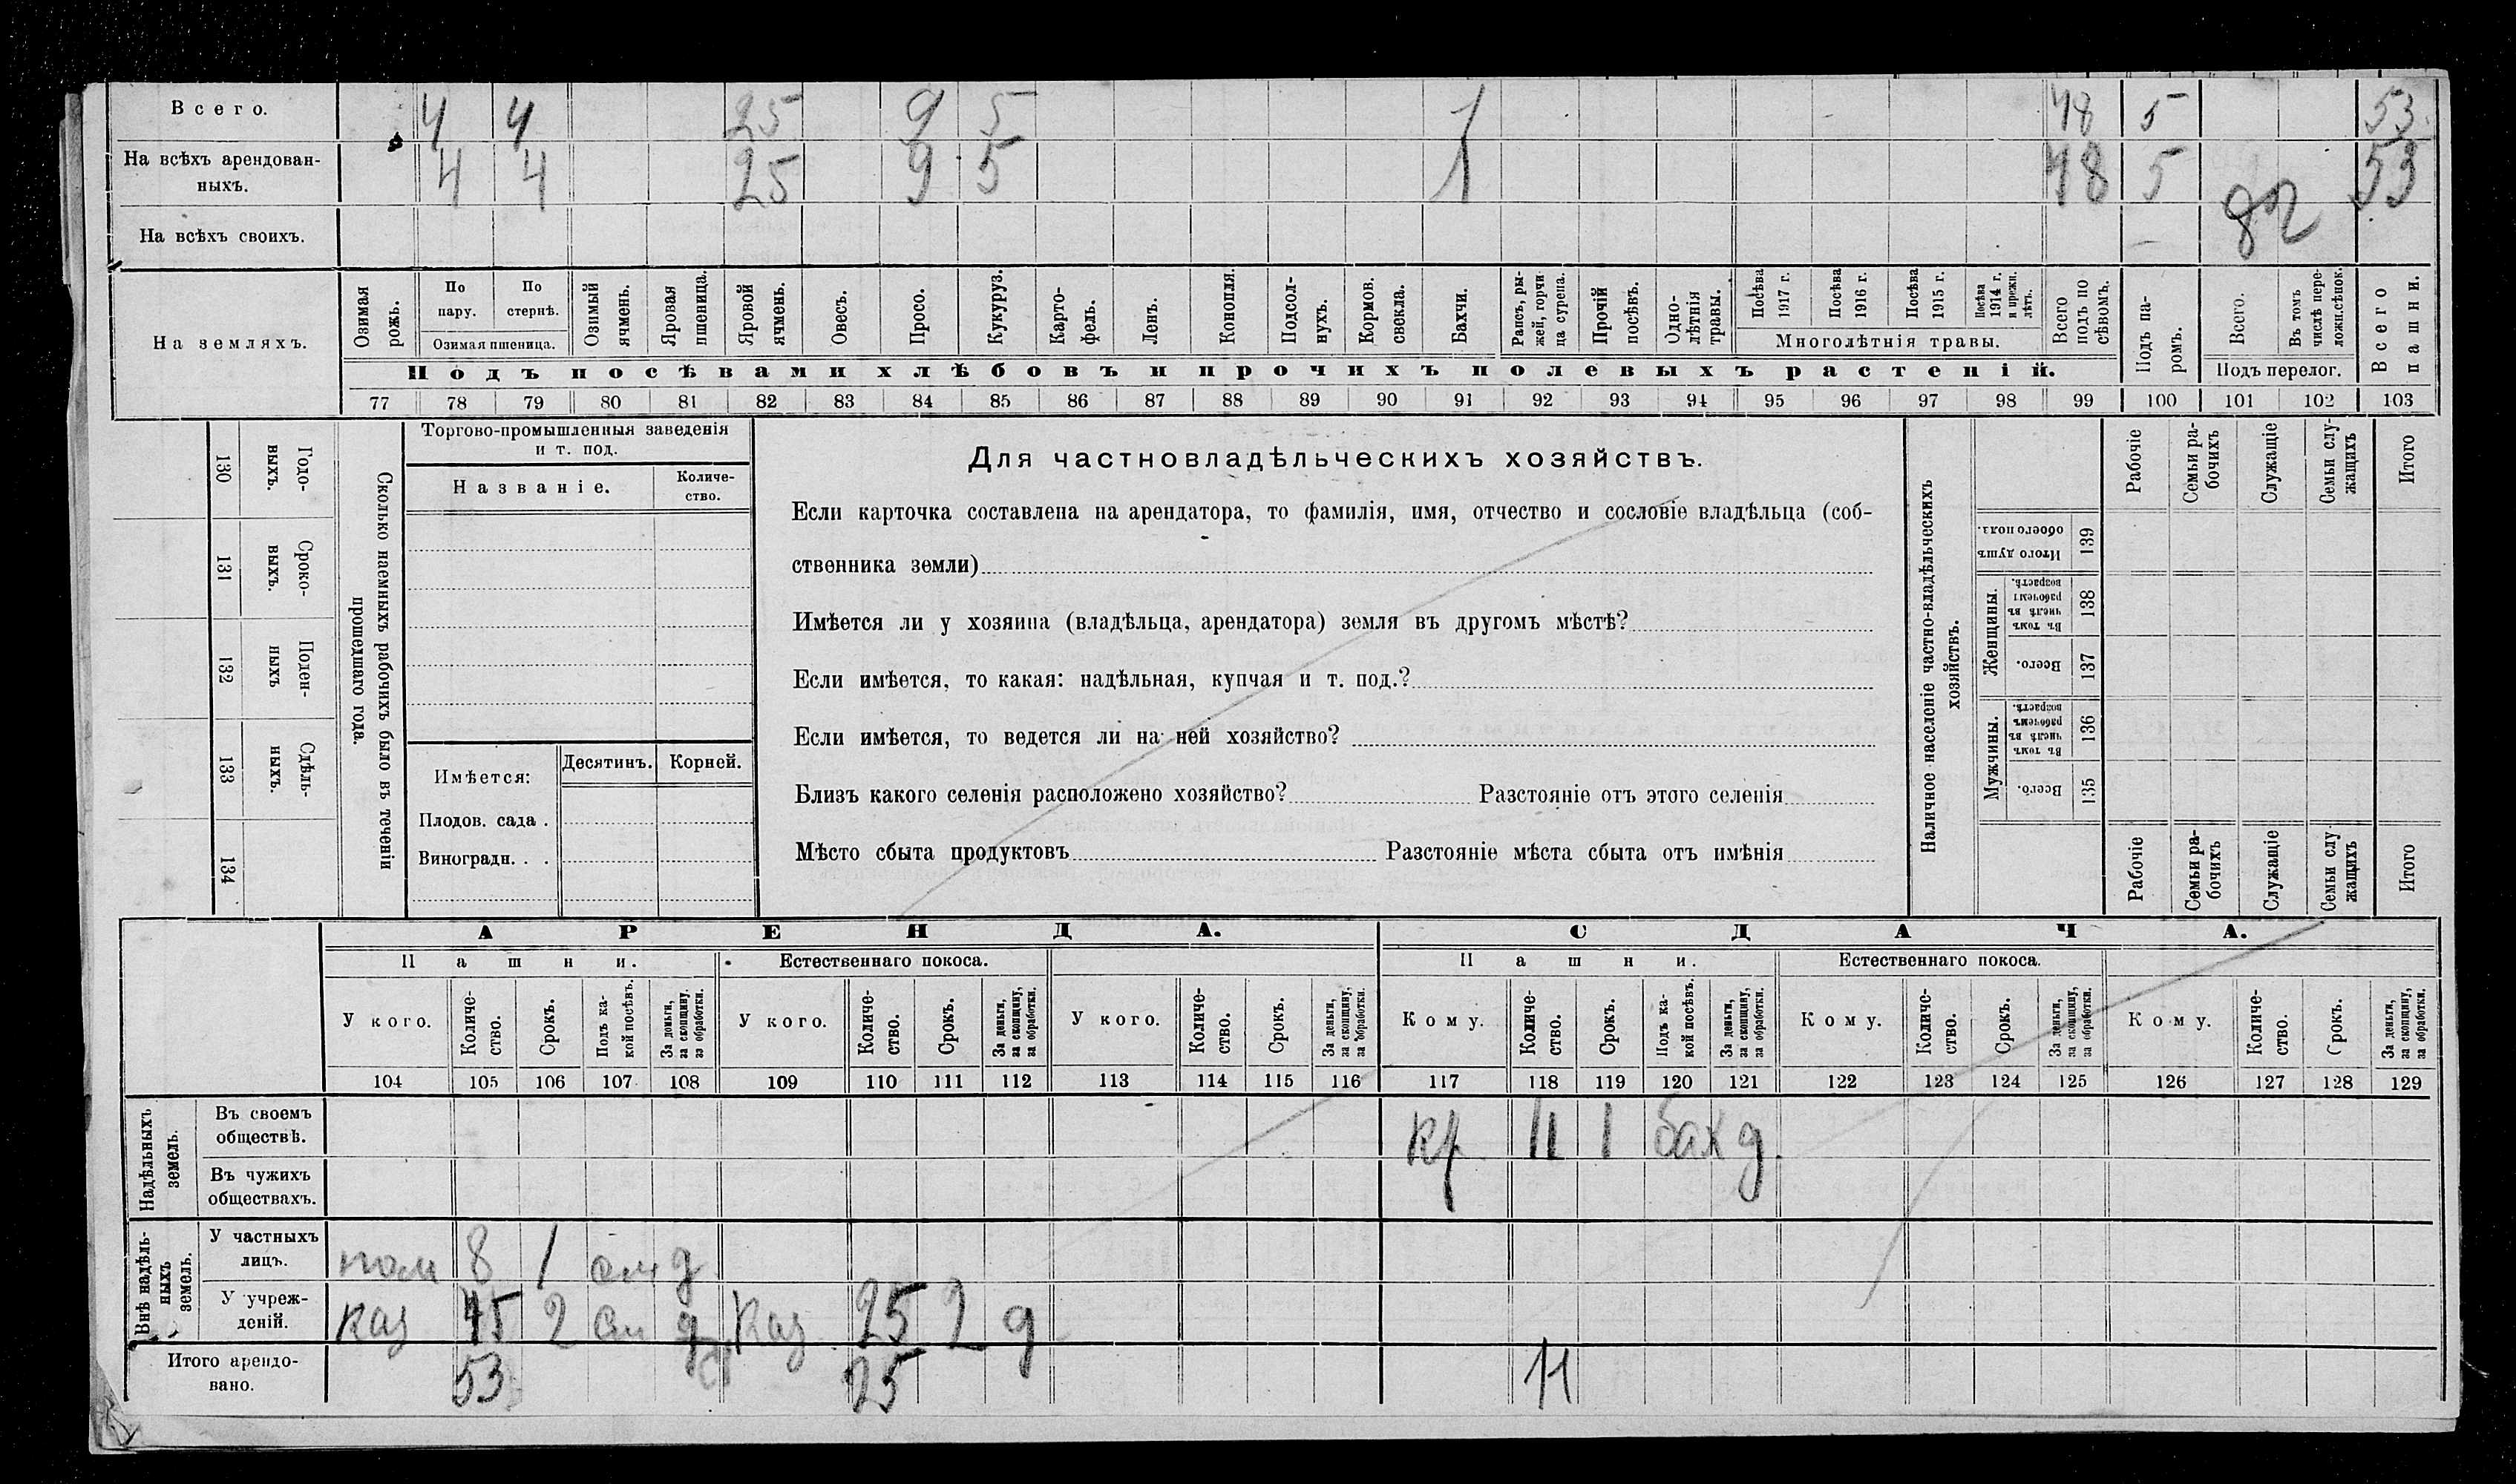 Всего. 4 4 25 9 5 1 48 5 53
На всѣхъ арендован-
ныхъ. 4 4 25 9 5 1 48 5 53
82
На всѣхъ своихъ.
На земляхъ.
Озимая рожь.
По пару.
По стернѣ.
Озимая пшеница.
Озимый ячмень.
Яровая пшеница.
Яровой ячмень.
Овесъ.
Просо.
Кукуруз.
Карто-
фель.
Ленъ.
Конопля.
Подсол-
нухъ.
Кормов. свекла.
Бахчи.
Рапсъ, ры-
жей, горчи
ца сурепа.
Прочій посѣвъ.
Одно-
лѣтнія травы.
Посѣва 1917 г.
Посѣва 1916 г.
Посѣва 1915 г.
Посѣва 1914 г. и прежн. лѣтъ.
Многолѣтнія травы.
Всего подъ по
сѣвомъ.
Подъ па-
ромъ.
Всего.
Въ томъ числѣ пере-
ложн. сѣнок.
Подъ перелог.
Всего пашни.
Подъ посѣвами хлѣбовъ и прочихъ полевыхъ растеній.
77 78 79 80 81 82 83 84 85 86 87 88 89 90 91 92 93 94 95 96 97 98 99 100 101 102 103
130 Годо-
выхъ.
131 Сроко-
выхъ.
132 Поден-
ныхъ
133 Сдѣль-
ныхъ.
134
Сколько наемныхъ рабочихъ было въ теченіи
прошедшаго года.
Торгово-промышленныя заведенія
и т. под.
Названіе.
Количе-
ство.
Имѣется:
Десятинъ. Корней.
Плодов. сада .
Виноградн. . .
Для частновладѣльческихъ хозяйствъ.
Если карточка составлена на арендатора, то фамилія, имя, отчество и сословіе владѣльца (соб-
ственника земли)
Имѣется ли у хозяина (владѣльца, арендатора) земля въ другомъ мѣстѣ?
Если имѣется, то какая: надѣльная, купчая и т. под.?
Если имѣется, то ведется ли на ней хозяйство?
Близъ какого селенія расположено хозяйство? Разстояніе отъ этого селенія
Мѣсто сбыта продуктовъ Разстояніе мѣста сбыта отъ имѣнія
Наличное населеніе частно-владѣльческихъ
хозяйствъ.
Рабочіе
Семьи ра-
бочихъ
Служащіе
Семьи слу-
жащихъ
Итого
Итого душъ обоего пола. 139
Женщины.
Въ томъ числѣ въ рабочемъ возрастѣ. 138
Всего. 137
Мужчины.
Въ томъ числѣ въ рабочемъ возрастѣ. 136
Всего. 135
Рабочіе
Семьи ра-
бочихъ
Служащіе
Семьи слу
жащихъ
Итого
АРЕНДА. СДАЧА.
Пашни. Естественнаго покоса. Пашни. Естественнаго покоса.
У кого.
Количе-
ство.
Срокъ.
Подъ ка-
кой посѣвъ.
За деньги,
за скопщину,
за обработки.
У кого.
Количе-
ство.
Срокъ.
За деньги,
за скопщину,
за обработки.
У кого.
Количе-
ство.
Срокъ.
За деньги,
за скопщину,
за обработки.
Кому.
Количе-
ство.
Срокъ.
Подъ ка-
кой посѣвъ.
За деньги,
за скопщину,
за обработки.
Кому.
Количе-
ство.
Срокъ.
За деньги,
за скопщину,
за обработки.
Кому.
Количе-
ство.
Срокъ.
За деньги,
за скопщину,
за обработки.
104 105 106 107 108 109 110 111 112 113 114 115 116 117 118 119 120 121 122 123 124 125 126 127 128 129
Надѣльныхъ
земель.
Въ своемъ
обществѣ. кр. 11 1 бах д.
Въ чужихъ
обществахъ.
Внѣ надѣль-
ныхъ
земель.
У частныхъ
лицъ. 8 1 д
У учреж-
деній. каз 45 2 д каз 25 2 д
Итого арендо-
вано. 53 25 11